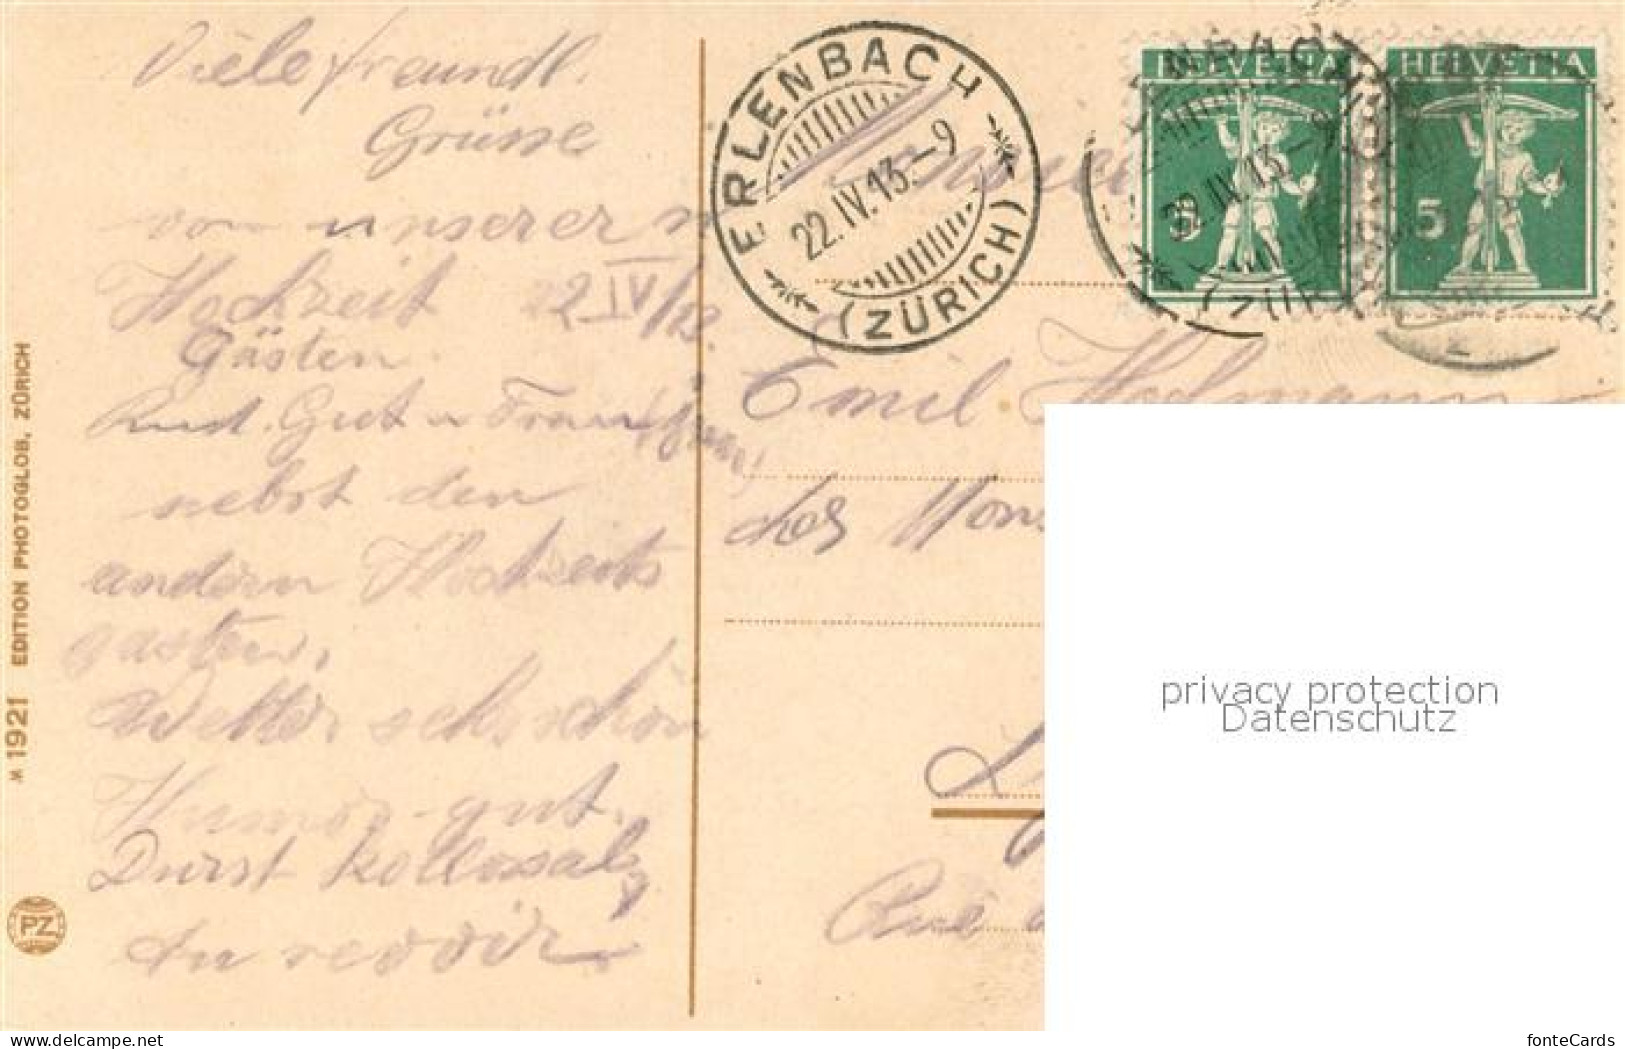 Viele freundl.
Grüsse
von unserer
Hochzeit 22 IV/13.
Gästen.
Gut u Frau
nebst den
andern Hochzeits
gästen,
Wetter sehr schön
Humor gut.
Durst kollossal,
Au revoir
M 1921 EDITION PHOTOGLOB, ZÜRICH
PZ
ERLENBACH
22.IV.13.-9
(ZÜRICH)
HELVETIA
5
HELVETIA
5
22.IV.13.-9
Emil
des
Rue
privacy protection
Datenschutz
www.delcampe.net
fonteCards